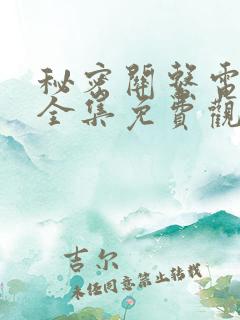 秘密關整電
全集免費觀
吉尔
未经同意禁止转载